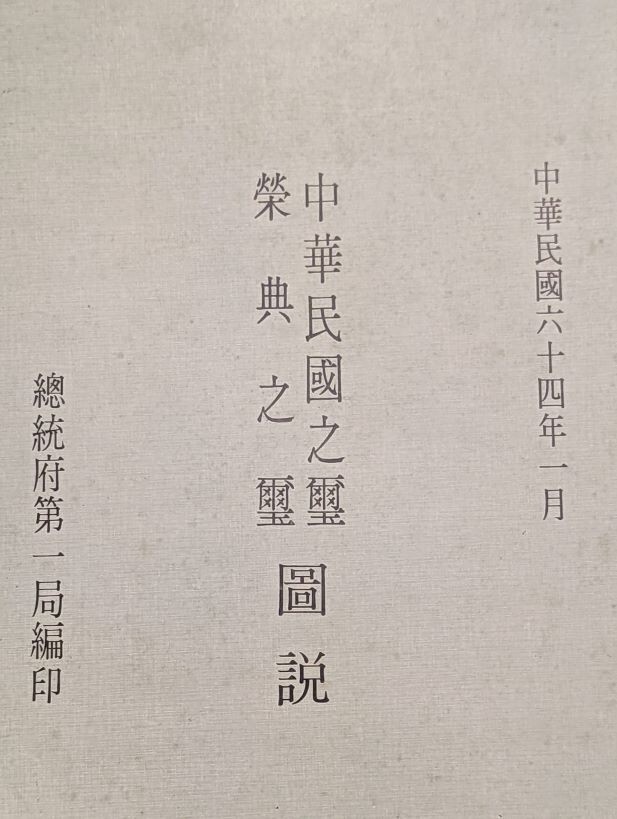 中華民國六十四年一月
中華民國之璽
榮典之璽
圖説
總統府第一局編印